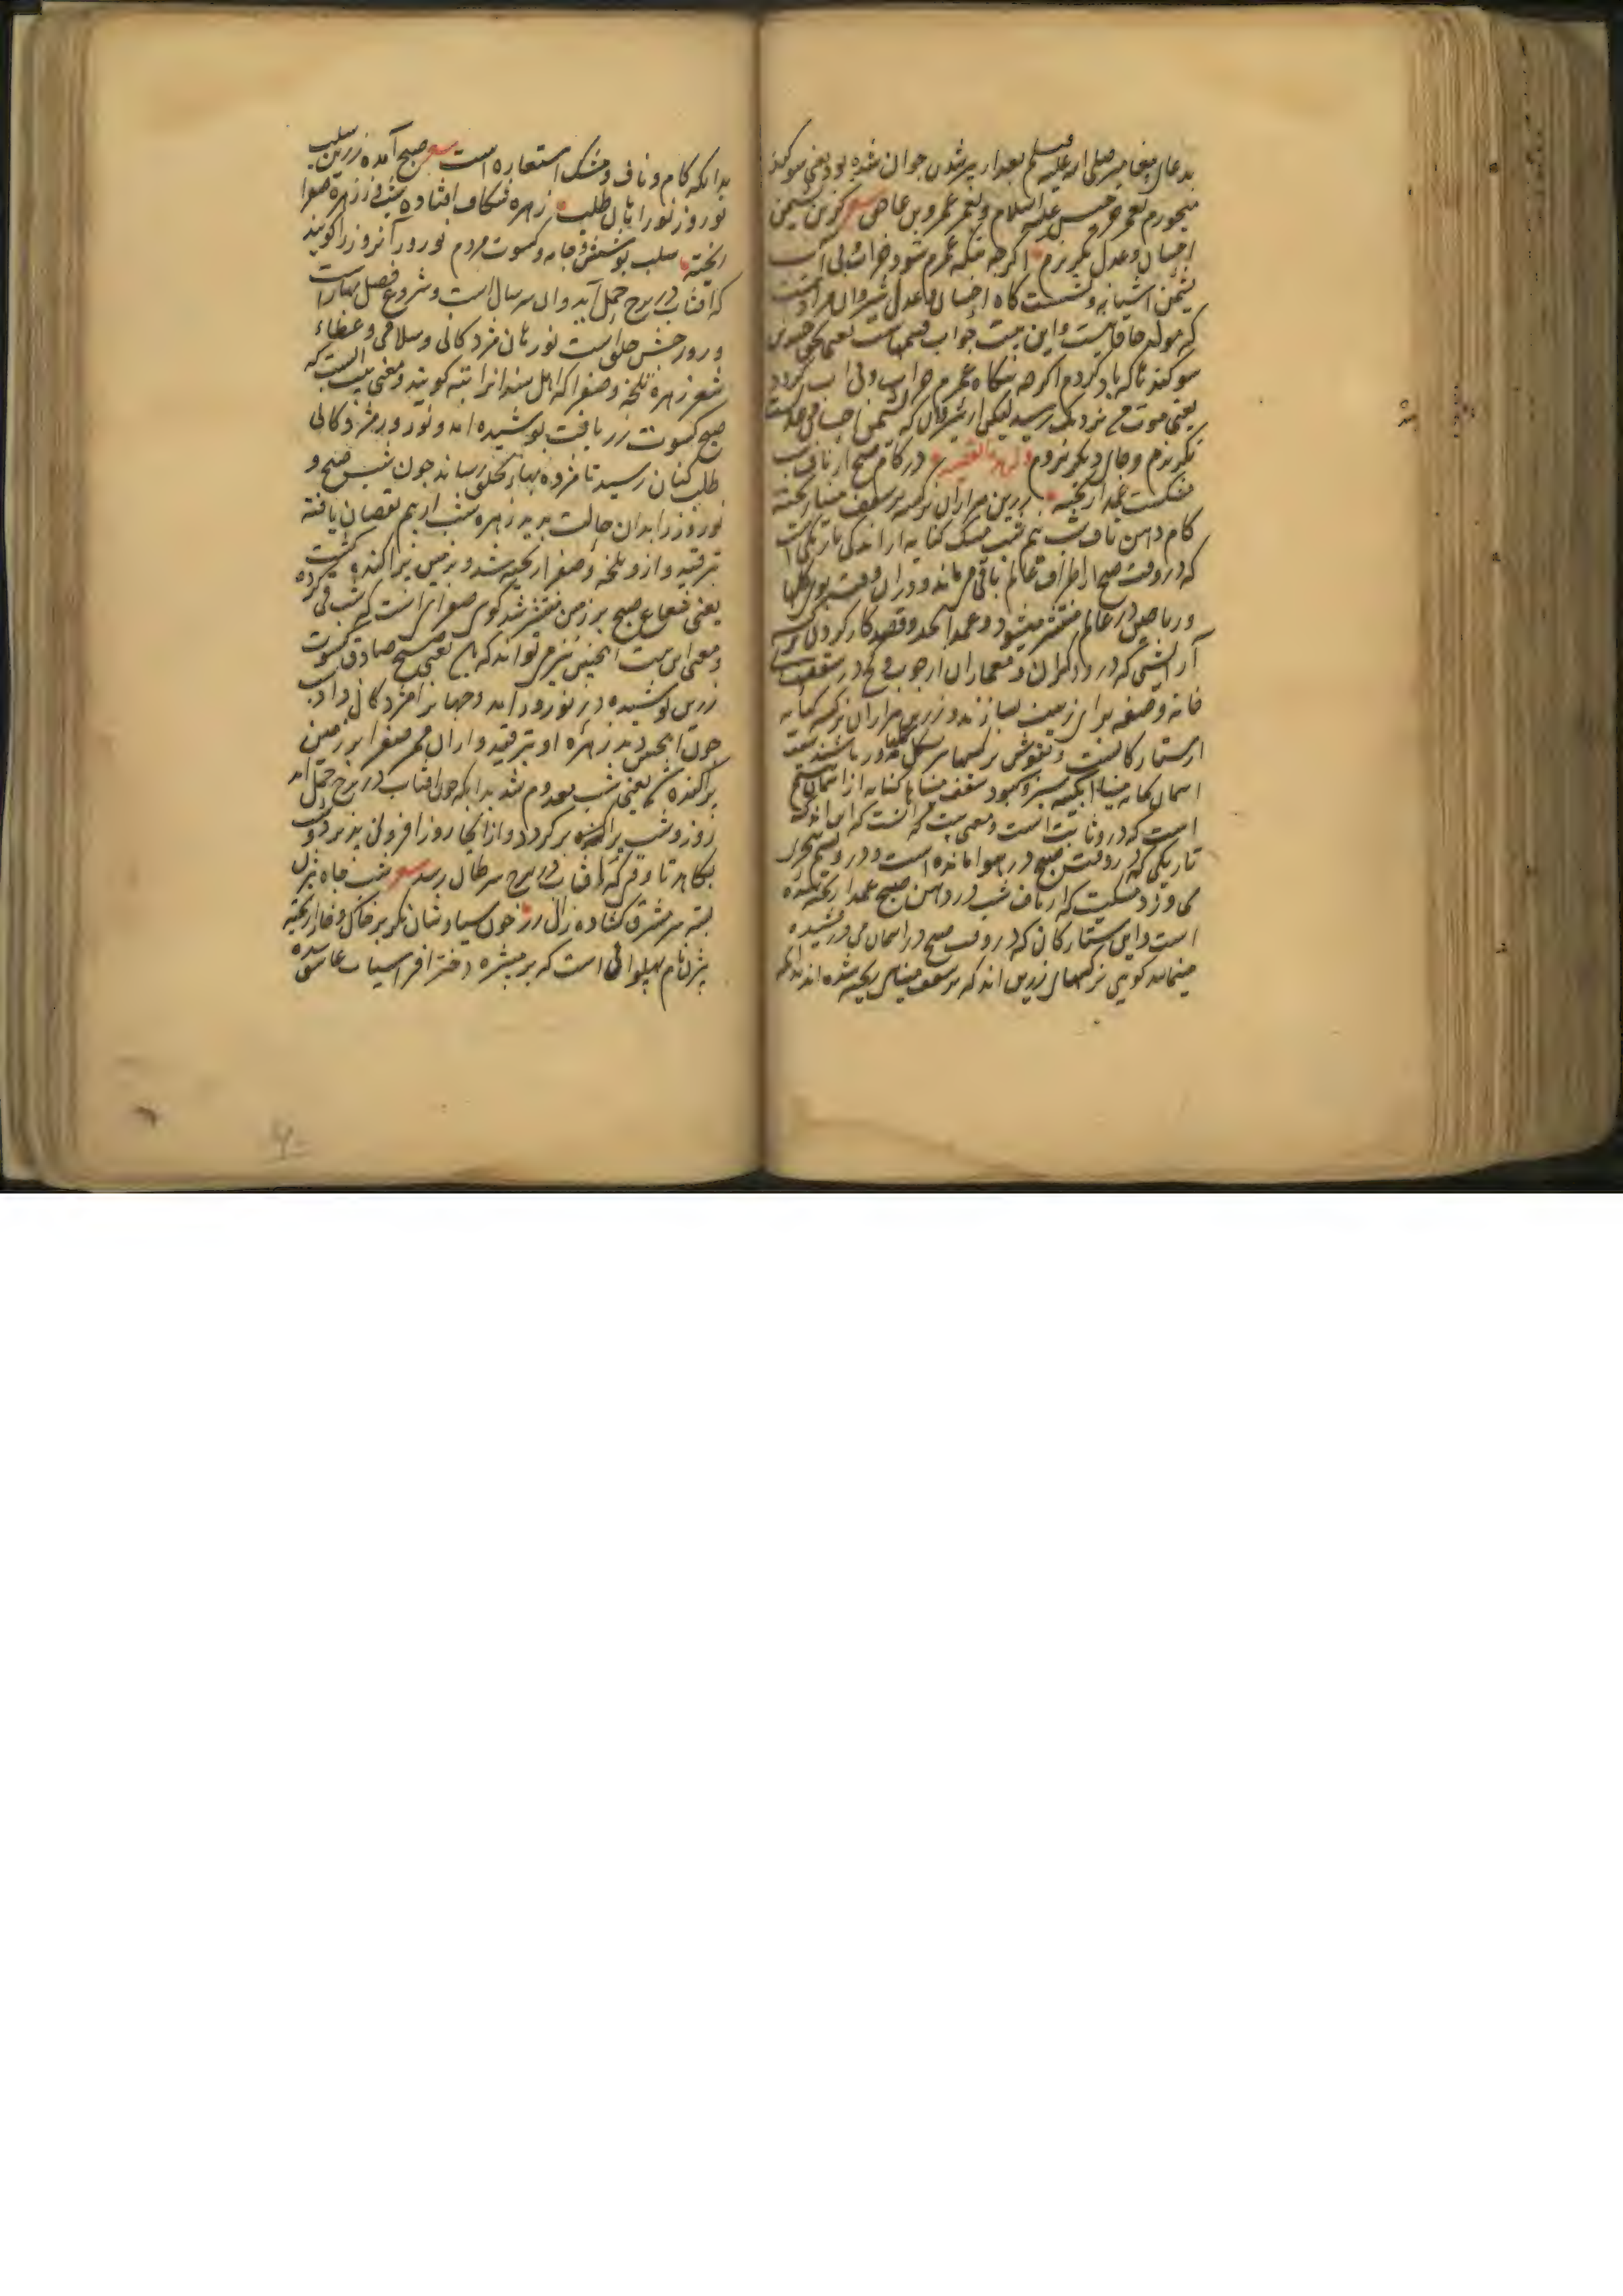 بدعای پیغامبر صلی الله علیه وسلم بعد از پیر شدن جوان شده بود یعنی سوکند
میخورم بعمر خضر علیه السلام و بعمر عمرو بن عاص شعر کزین نشیمن
احسان و عدل نکریزم اکرچه بنکه عمرم شود خراب بی آب
نشیمن آشیانه و نشستگاه احسان و عدل شیروان مراد است
که مولد خاقانیست و این بیت جواب قسمهاست
سوکند تا که یاد کردم اکرچه بنکاه عمرم خراب و بی آب کردد
یعنی موت من نزدیک رسید لیکن از شیروان که نشیمن احسان و عدلست
نکریزم و جای دیکر نروم در کام صبح از ناف شب
مشکست عمدا ریخته زرین هزاران نرکسه بر سقف مینا ریخته
کام دهن ناف شب نیم شب مشک کنایه از اندکی تاریکی است
که در وقت صبح در اطراف عالم باقی می‌ماند و در آن وقت بوی کلها
و ریاحین در عالم منتشر میشود و عمدا بعمد و قصد کار کردن نرکسه
آرایشی که درودکران و معماران از چوب و کچ در سقف
خانه و صفه برای زینت سازند و زرین هزاران نرکسه کنایه
از ستارکانست و نقوش نرکسها بشکل کلها و در باشند سقف
آسمان خانه مینا آبکینه سبز و کبود سقف مینا کنایه از آسمان هشتم
است که در و ثابت است و معنی بیت آنست که این اندک
تاریکی که در وقت صبح در هوا مانده است و در و نسیم سحری
می وزد مشکیست که از ناف شب در دهن صبح عمدا ریخته شده
است و این ستارکان که در وقت صبح در آسمان می درخشیده
مینماید کویی نرکسهای زرین اند که بر سقف مینایی ریخته شده اند
بدانکه کام و ناف و مشک استعاره است شعر صبح آمده زرین سلب
نوروز نوراهان طلب زهره شکاف افتاده شب وز زهره صفرا
ریخته سلب پوشش و جامه و کسوت مردم نوروز آنروز را کویند
که آفتاب در برج حمل آید و آن سر سال است و شروع فصل بهار است
و روز جشن خلق است نورهان مژدکانی و سلامی و عطاء
شعر زهره تلخه و صفرا که اهل هند آنرا پته کویند و معنی بیت آنست که
صبح کسوت زربافت پوشیده آمد و نوروز مژدکانی
طلب کنان رسید تا مژده بهار بخلق رساند چون شب صبح و
نوروز را بدان حالت بدید زهره شب از بیم نقصان یافته
بترقید و از و تلخه و صفرا ریخته شد و بر زمین پراکنده کشت
یعنی شعاع صبح بر زمین منتشر شد کویی صفرا آنست که شب قی کرده
و معنی این بیت اینچنین نیز می تواند که یعنی صبح صادق کسوت
زرین پوشیده در نوروز آمد و جهانرا مژدکانی داد شب
چون اینچنین دید زهره او بترقید و از آن صفرا بر زمین
پراکنده یعنی شب معدوم شد بدانکه چون آفتاب در برج حمل آمد
روز و شب برابر کردد و از آنجا روز افزونی پذیرد و شب
بکاهد تا وقتیکه آفتاب در برج سرطان رسد شعر شب چاه بیژن
بسته سر مشرق کشاده زال زر خون سیاوشان نکر بر خاک و خارا ریخته
بیژن نام پهلوانی است که بر منیژه دختر افراسیاب عاشق شده